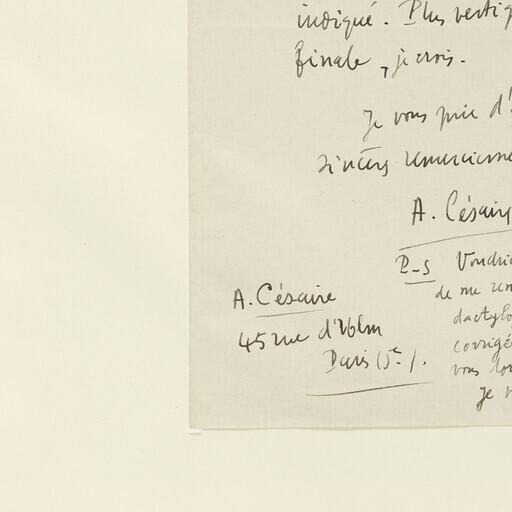 indiqué. Plus vertig
finale, je crois.
Je vous prie d'
sincères remercieme
A. Césaire
P-S Voudrie
de me ren
dactylo
corrigé
vous
Je v
A. Césaire
45 rue d'Ulm
Paris (5e).